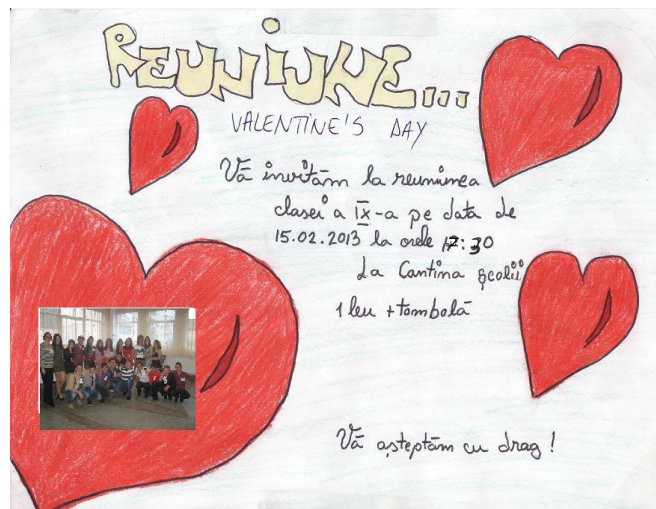 REUNIUNE...
VALENTINE'S DAY
Vă invităm la reuniunea
clasei a IX-a pe data de
15.02.2013 la orele 12:30
La Cantina școlii
1 leu + tombolă
Vă așteptăm cu drag!